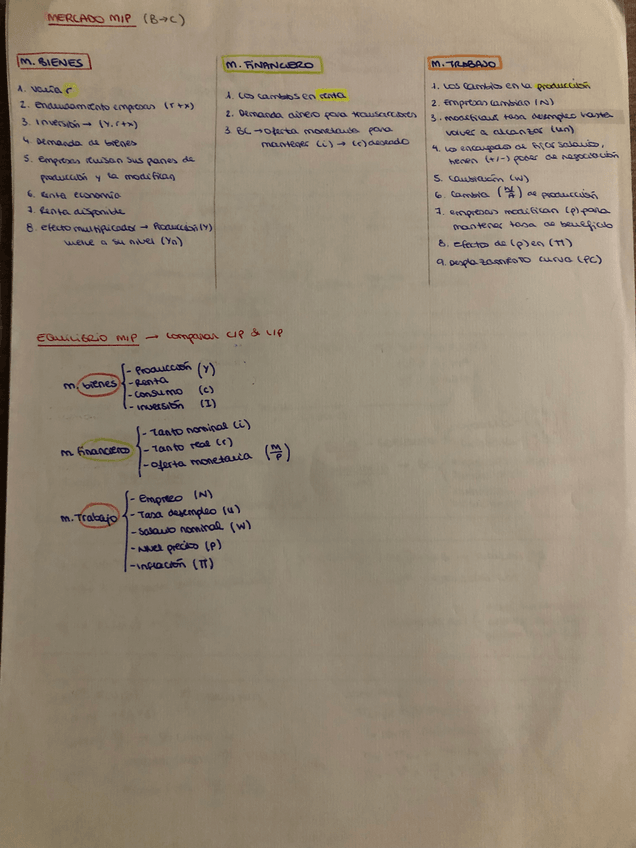 MERCADO M|P (B→C)
M. BIENES
1. varía r
2. Endeudamiento empresas (r+x)
3. Inversión → (Y, r+x)
4. Demanda de bienes
5. Empresas revisan sus planes de
producción y la modifican
6. Renta economía
7. Renta disponible
8. Efecto multiplicador → Producción (Y)
vuelve a su nivel (Yn)
M. FINANCIERO
1. Los cambios en renta
2. Demanda dinero para transacciones
3. BC → oferta monetaria para
mantener (i) → (r) deseado
M. TRABAJO
1. Los cambios en la producción
2. Empresas cambian (N)
3. modifican tasa desempleo hasta
volver a alcanzar (un)
4. Los encargados de fijar salarios,
tienen (+/-) poder de negociación
5. Cambiarán (W)
6. Cambia (W/A) de producción
7. empresas modifican (P) para
mantener tasa de beneficio
8. Efecto de (P) en (Π)
9. Desplazamiento curva (PC)
EQUILIBRIO M|P → comparar C|P & L|P
M. bienes
- Producción (Y)
- Renta
- Consumo (C)
- Inversión (I)
M. Financiero
- Tanto nominal (i)
- Tanto real (r)
- Oferta monetaria (M/P)
M. Trabajo
- Empleo (N)
- Tasa desempleo (u)
- Salario nominal (W)
- Nivel precios (P)
- Inflación (Π)